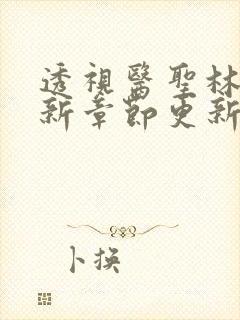 透視醫聖林
新章節更新
卜揆